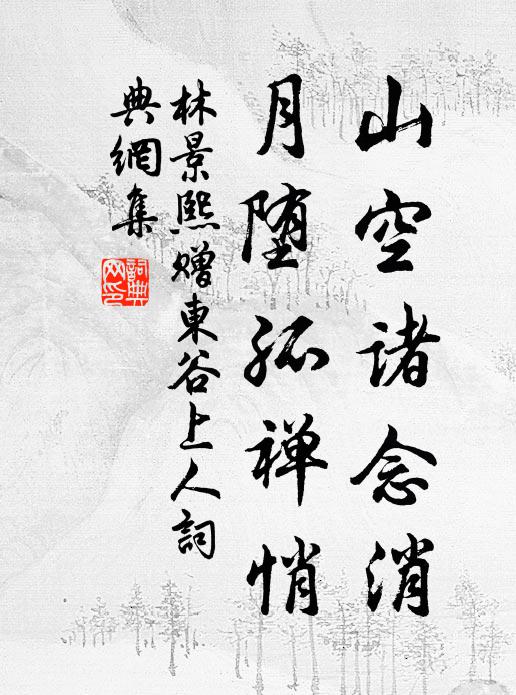 山空诸念消
月堕孤禅悄
林景熙赠東谷上人詞
典網集
詞典
网印